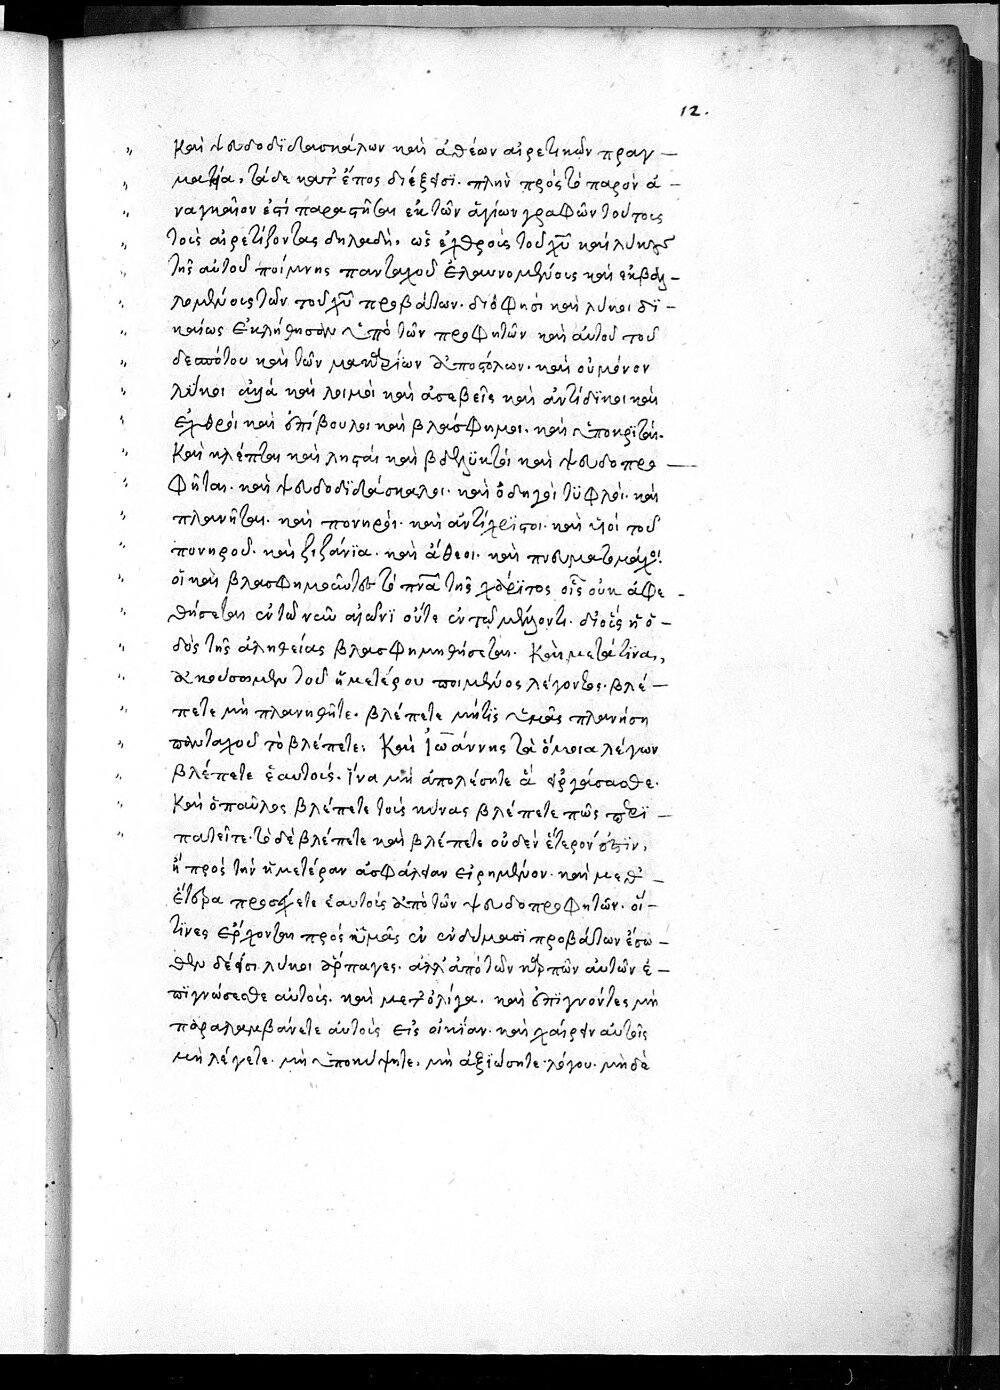 12.
καὶ ψευδοδϊδασκάλων καὶ ἀθέων αἱρετικῶν πραγ —
ματεία, τάδε κατ' ἔπος διέξεισι. πλὴν πρὸς τὸ παρὸν ἀ —
ναγκαῖον ἐστὶ παραστῆσαι ἐκ τῶν ἁγίων γραφῶν τούτους
τοὺς αἱρετίζοντας δηλαδὴ, ὡς ἐχθροὺς τοῦ χυ καὶ λύκους
τῆς αὐτοῦ ποίμνης πανταχοῦ ἐλαυνομένους καὶ ἐκβαλ —
λομένους τῶν τοῦ χυ προβάτων. διό φησι καὶ λύκοι δϊ —
καίως ἐκλήθησαν ὑπὸ τῶν προφητῶν καὶ αὐτοῦ τοῦ
δεσπότου καὶ τῶν μακαρίων ἀποστόλων. καὶ οὐ μόνον
λύκοι ἀλλὰ καὶ λοιμοὶ καὶ ἀσεβεῖς καὶ ἀντίδϊκοι καὶ
ἐχθροὶ καὶ ἐπίβουλοι καὶ βλάσφημοι. καὶ ὑποκρϊταί.
Καὶ κλέπται καὶ λῃσταὶ καὶ βδελϋκτοὶ καὶ ψευδοπρο —
φῆται. καὶ ψευδοδϊδάσκαλοι. καὶ ὁδηγοὶ τϋφλοί. καὶ
πλανῆται. καὶ πονηροί. καὶ ἀντίχρϊστοι. καὶ υἱοὶ τοῦ
πονηροῦ. καὶ ζιζάνϊα. καὶ ἄθεοι. καὶ πνευματομάχοι.
οἳ καὶ βλασφημοῦντες τὸ πνα τῆς χάρϊτος οἷς οὐκ ἀφε —
θήσεται ἐν τῷ νῦν αἰῶνϊ οὔτε ἐν τῷ μέλλοντι. δι' οὓς ἡ ὁ —
δὸς τῆς ἀληθείας βλασφημηθήσεται. Καὶ μετά τϊνα,
ἀκούσωμεν τοῦ ἡμετέρου ποιμένος λέγοντος. βλέ —
πετε μὴ πλανηθῆτε. βλέπετε μήτϊς ὑμᾶς πλανήσῃ
πανταχοῦ τὸ βλέπετε. Καὶ ἰωάννης τὰ ὅμοια λέγων
βλέπετε ἑαυτούς. ἵνα μὴ ἀπολέσητε ἃ εἰργάσασθε.
Καὶ ὁ παῦλος βλέπετε τοὺς κύνας βλέπετε πῶς περϊ —
πατεῖτε. τὸ δὲ βλέπετε καὶ βλέπετε οὐδὲν ἕτερόν ἐστϊν,
ἢ πρὸς τὴν ἡμετέραν ἀσφάλειαν εἰρημένον. καὶ μεθ' —
ἕτερα προσέχετε ἑαυτοῖς ἀπὸ τῶν ψευδοπροφητῶν. οἵ —
τϊνες ἔρχονται πρὸς ὑμᾶς ἐν ἐνδύμασϊ προβάτων ἔσω —
θεν δέ εἰσι λύκοι ἅρπαγες. ἀλλ' ἀπὸ τῶν καρπῶν αὐτῶν ἐ —
πϊγνώσεσθε αὐτούς. καὶ μετ' ὀλίγα. καὶ ἐπϊγνόντες μὴ
παραλαμβάνετε αὐτοὺς εἰς οἰκίαν. καὶ χαίρειν αὐτοῖς
μὴ λέγετε. μὴ ὑποκύψητε, μὴ ἀξϊώσητε λόγου. μὴ δὲ